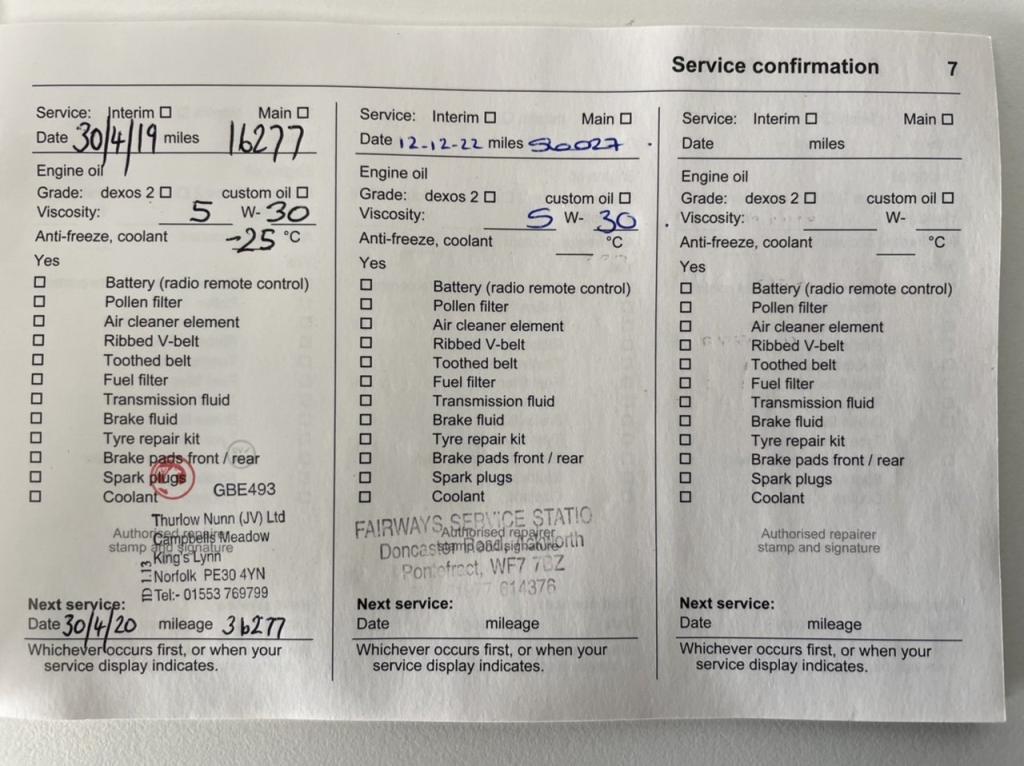 Service confirmation 7
Service: Interim Main
Date 30/4/19 miles 16277
Engine oil
Grade: dexos 2 custom oil
Viscosity: 5 W- 30
Anti-freeze, coolant -25 °C
Yes
Battery (radio remote control)
Pollen filter
Air cleaner element
Ribbed V-belt
Toothed belt
Fuel filter
Transmission fluid
Brake fluid
Tyre repair kit
Brake pads front / rear
Spark plugs
Coolant
GBE493
Thurlow Nunn (JV) Ltd
Campbells Meadow
King's Lynn
Norfolk PE30 4YN
Tel:- 01553 769799
Authorised repairer
stamp and signature
Next service:
Date 30/4/20 mileage 36277
Whichever occurs first, or when your
service display indicates.
Service: Interim Main
Date 12-12-22 miles 56027
Engine oil
Grade: dexos 2 custom oil
Viscosity: 5 W- 30
Anti-freeze, coolant °C
Yes
Battery (radio remote control)
Pollen filter
Air cleaner element
Ribbed V-belt
Toothed belt
Fuel filter
Transmission fluid
Brake fluid
Tyre repair kit
Brake pads front / rear
Spark plugs
Coolant
FAIRWAYS SERVICE STATIO
Authorised repairer
stamp and signature
Doncaster Road, Ackworth
Pontefract, WF7
614376
Next service:
Date mileage
Whichever occurs first, or when your
service display indicates.
Service: Interim Main
Date miles
Engine oil
Grade: dexos 2 custom oil
Viscosity: W-
Anti-freeze, coolant °C
Yes
Battery (radio remote control)
Pollen filter
Air cleaner element
Ribbed V-belt
Toothed belt
Fuel filter
Transmission fluid
Brake fluid
Tyre repair kit
Brake pads front / rear
Spark plugs
Coolant
Authorised repairer
stamp and signature
Next service:
Date mileage
Whichever occurs first, or when your
service display indicates.